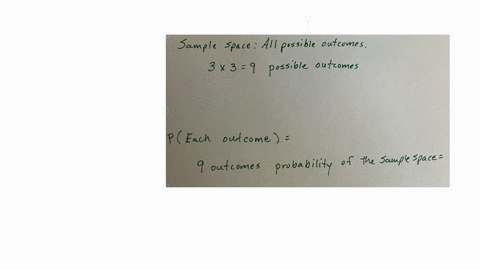 Sample space: All possible outcomes.
3 x 3 = 9 possible outcomes
P(Each outcome) =
9 outcomes probability of the sample space =